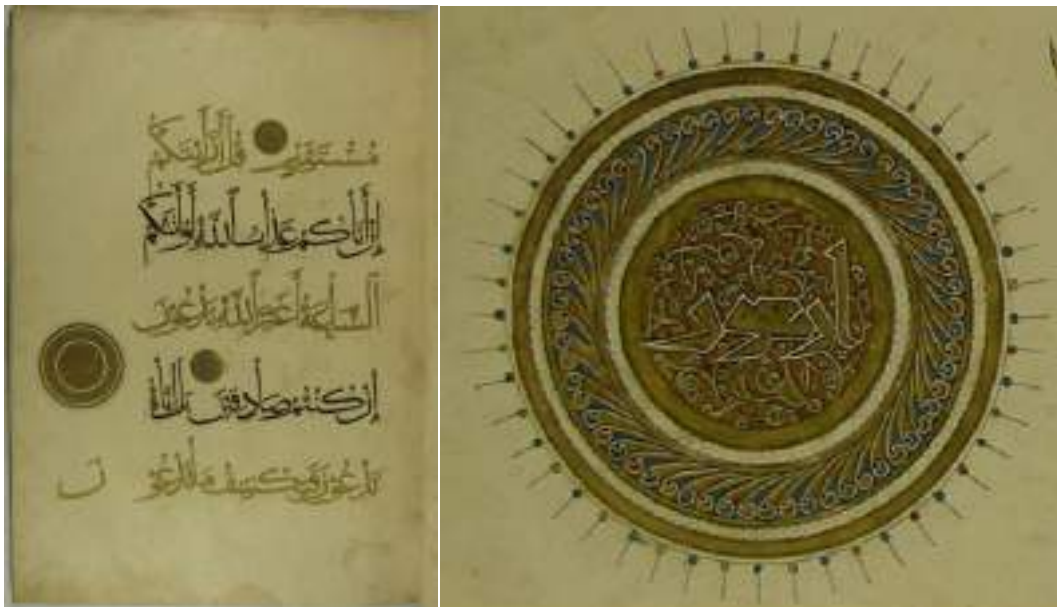 مُسْتَقِيمٍ قُلْ أَرَأَيْتَكُمْ
إِنْ أَتَاكُمْ عَذَابُ اللَّهِ أَوْ أَتَتْكُمُ
السَّاعَةُ أَغَيْرَ اللَّهِ تَدْعُونَ
إِنْ كُنْتُمْ صَادِقِينَ بَلْ إِيَّاهُ
تَدْعُونَ فَيَكْشِفُ مَا تَدْعُو ن